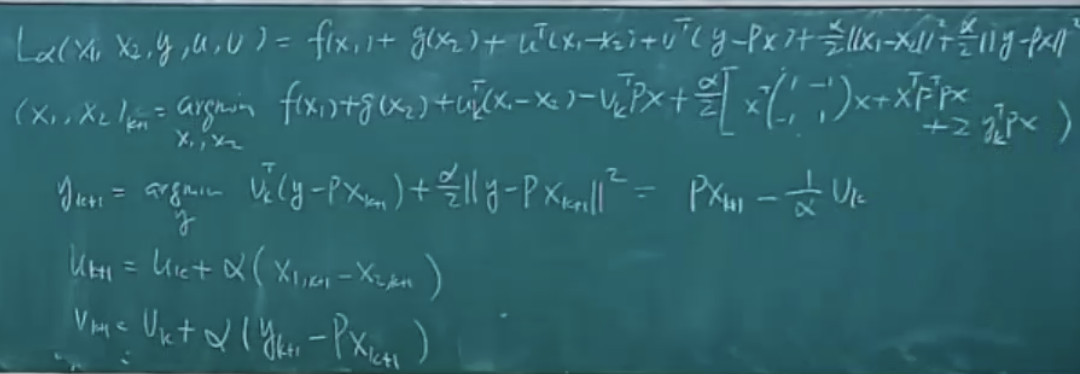 Lα(x₁, x₂, y, u, v) = f(x₁) + g(x₂) + uᵀ(x₁-x₂) + vᵀ(y-Px) + α/2 ||x₁-x₂||² + α/2 ||y-Px||²
(x₁, x₂)ₖ₊₁ = argmin_{x₁,x₂} f(x₁)+g(x₂)+uₖᵀ(x₁-x₂)-vₖᵀPx + α/2 [ xᵀ(1 -1 -1 1)x + xᵀPᵀPx +2 yₖᵀPx )
yₖ₊₁ = argmin_y vₖᵀ(y-Pxₖ₊₁) + α/2 ||y-Pxₖ₊₁||² = Pxₖ₊₁ - 1/α vₖ
uₖ₊₁ = uₖ + α(x₁,ₖ₊₁ - x₂,ₖ₊₁)
vₖ₊₁ = vₖ + α(yₖ₊₁ - Pxₖ₊₁)